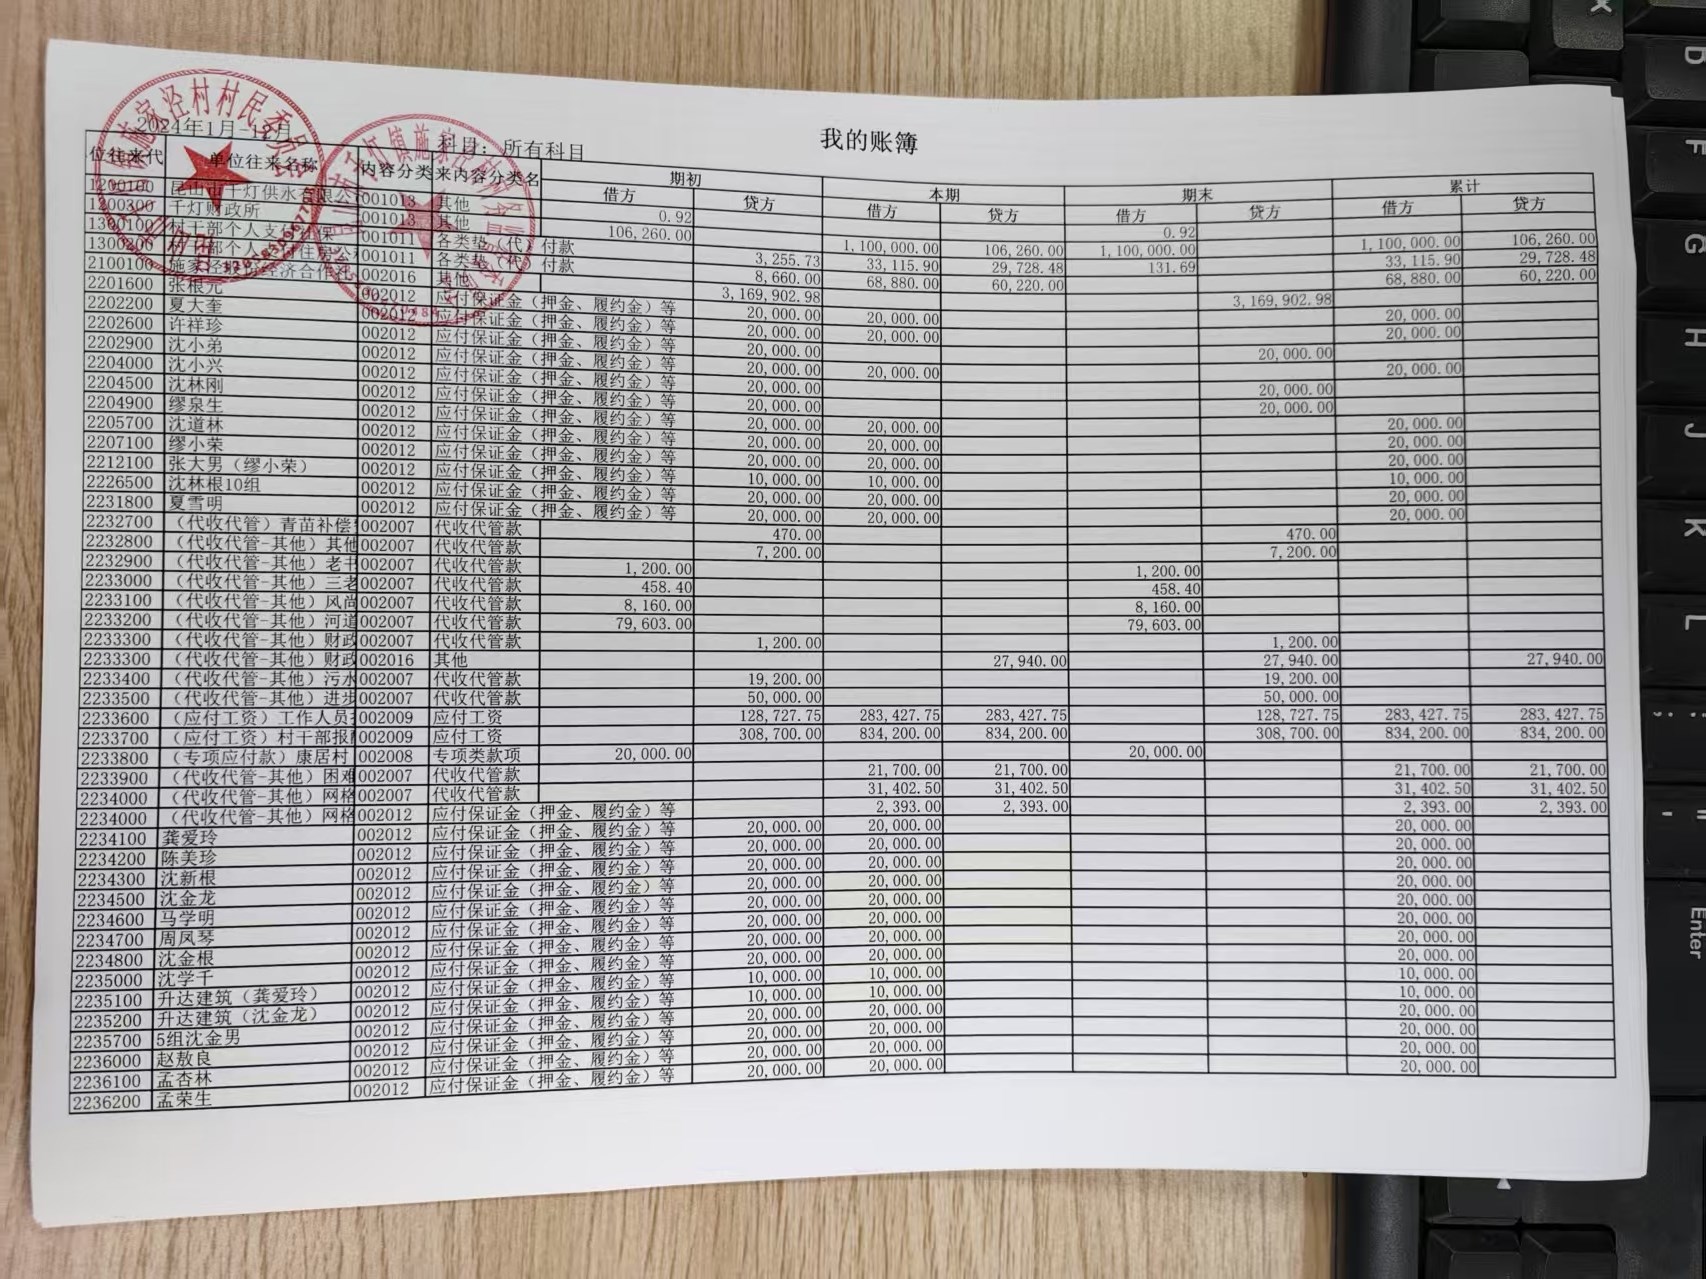 我的账簿
2024年1月-12月 科目：所有科目
位往来代 单位往来名称 内容分类 来内容分类名 期初 本期 期末 累计
借方 贷方 借方 贷方 借方 贷方 借方 贷方
1200100 昆山市千灯供水有限公 001013 其他 0.92 0.92
1200300 千灯财政所 001013 其他 106,260.00 1,100,000.00 106,260.00 1,100,000.00 1,100,000.00 106,260.00
1300100 村干部个人支付社保 001011 各类垫（代）付款 3,255.73 33,115.90 29,728.48 131.69 33,115.90 29,728.48
1300200 村干部个人 住房公 001011 各类垫（代）付款 8,660.00 68,880.00 60,220.00 68,880.00 60,220.00
2100100 施家泾股份经济合作社 002016 其他 3,169,902.98 3,169,902.98
2201600 张根元 002012 应付保证金（押金、履约金）等 20,000.00 20,000.00 20,000.00
2202200 夏大奎 002012 应付保证金（押金、履约金）等 20,000.00 20,000.00 20,000.00
2202600 许祥珍 002012 应付保证金（押金、履约金）等 20,000.00 20,000.00
2202900 沈小弟 002012 应付保证金（押金、履约金）等 20,000.00 20,000.00 20,000.00
2204000 沈小兴 002012 应付保证金（押金、履约金）等 20,000.00 20,000.00
2204500 沈林刚 002012 应付保证金（押金、履约金）等 20,000.00 20,000.00
2204900 缪泉生 002012 应付保证金（押金、履约金）等 20,000.00 20,000.00 20,000.00
2205700 沈道林 002012 应付保证金（押金、履约金）等 20,000.00 20,000.00 20,000.00
2207100 缪小荣 002012 应付保证金（押金、履约金）等 20,000.00 20,000.00 20,000.00
2212100 张大男（缪小荣） 002012 应付保证金（押金、履约金）等 10,000.00 10,000.00 10,000.00
2226500 沈林根10组 002012 应付保证金（押金、履约金）等 20,000.00 20,000.00 20,000.00
2231800 夏雪明 002012 应付保证金（押金、履约金）等 20,000.00 20,000.00 20,000.00
2232700 （代收代管）青苗补偿 002007 代收代管款 470.00 470.00
2232800 （代收代管-其他）其他 002007 代收代管款 7,200.00 7,200.00
2232900 （代收代管-其他）老书 002007 代收代管款 1,200.00 1,200.00
2233000 （代收代管-其他）三老 002007 代收代管款 458.40 458.40
2233100 （代收代管-其他）风尚 002007 代收代管款 8,160.00 8,160.00
2233200 （代收代管-其他）河道 002007 代收代管款 79,603.00 79,603.00
2233300 （代收代管-其他）财政 002007 代收代管款 1,200.00 1,200.00
2233300 （代收代管-其他）财政 002016 其他 27,940.00 27,940.00 27,940.00
2233400 （代收代管-其他）污水 002007 代收代管款 19,200.00 19,200.00
2233500 （代收代管-其他）进步 002007 代收代管款 50,000.00 50,000.00
2233600 （应付工资）工作人员 002009 应付工资 128,727.75 283,427.75 283,427.75 128,727.75 283,427.75 283,427.75
2233700 （应付工资）村干部报 002009 应付工资 308,700.00 834,200.00 834,200.00 308,700.00 834,200.00 834,200.00
2233800 （专项应付款）康居村 002008 专项类款项 20,000.00 20,000.00
2233900 （代收代管-其他）困难 002007 代收代管款 21,700.00 21,700.00 21,700.00 21,700.00
2234000 （代收代管-其他）网格 002007 代收代管款 31,402.50 31,402.50 31,402.50 31,402.50
2234000 （代收代管-其他）网格 002012 应付保证金（押金、履约金）等 2,393.00 2,393.00 2,393.00 2,393.00
2234100 龚爱玲 002012 应付保证金（押金、履约金）等 20,000.00 20,000.00 20,000.00
2234200 陈美珍 002012 应付保证金（押金、履约金）等 20,000.00 20,000.00 20,000.00
2234300 沈新根 002012 应付保证金（押金、履约金）等 20,000.00 20,000.00 20,000.00
2234500 沈金龙 002012 应付保证金（押金、履约金）等 20,000.00 20,000.00 20,000.00
2234600 马学明 002012 应付保证金（押金、履约金）等 20,000.00 20,000.00 20,000.00
2234700 周凤琴 002012 应付保证金（押金、履约金）等 20,000.00 20,000.00 20,000.00
2234800 沈金根 002012 应付保证金（押金、履约金）等 20,000.00 20,000.00 20,000.00
2235000 沈学千 002012 应付保证金（押金、履约金）等 20,000.00 20,000.00 20,000.00
2235100 升达建筑（龚爱玲） 002012 应付保证金（押金、履约金）等 10,000.00 10,000.00 10,000.00
2235200 升达建筑（沈金龙） 002012 应付保证金（押金、履约金）等 10,000.00 10,000.00 10,000.00
2235700 5组沈金男 002012 应付保证金（押金、履约金）等 20,000.00 20,000.00 20,000.00
2236000 赵敖良 002012 应付保证金（押金、履约金）等 20,000.00 20,000.00 20,000.00
2236100 孟杏林 002012 应付保证金（押金、履约金）等 20,000.00 20,000.00 20,000.00
2236200 孟荣生 002012 应付保证金（押金、履约金）等 20,000.00 20,000.00 20,000.00
施家泾村村民委员会
灯镇施家泾村村
D
F
G
H
J
K
L
Enter